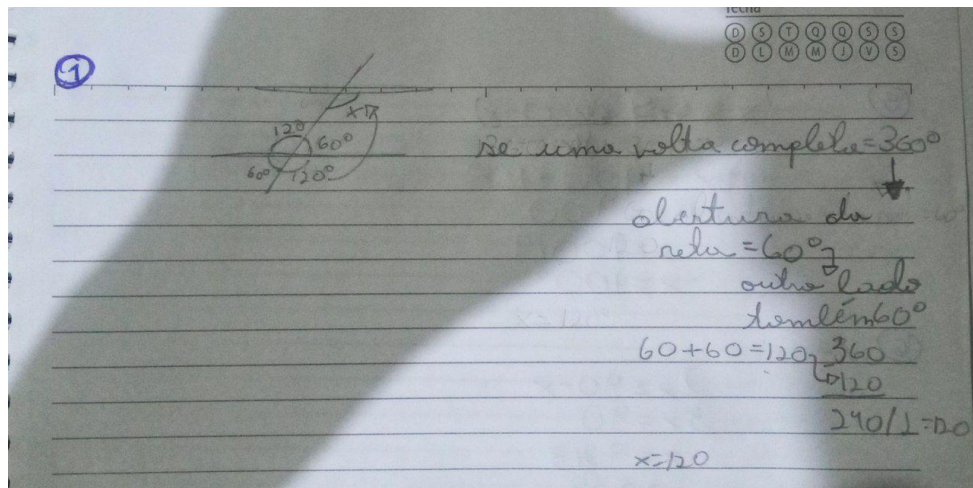 fecha
D S T Q Q S S
D L M M J V S
1
x
120
60°
60°
120°
se uma volta completa=360°
abertura da
reta=60°
outro lado
também 60°
60+60=120 360
120
240/2=120
x=120